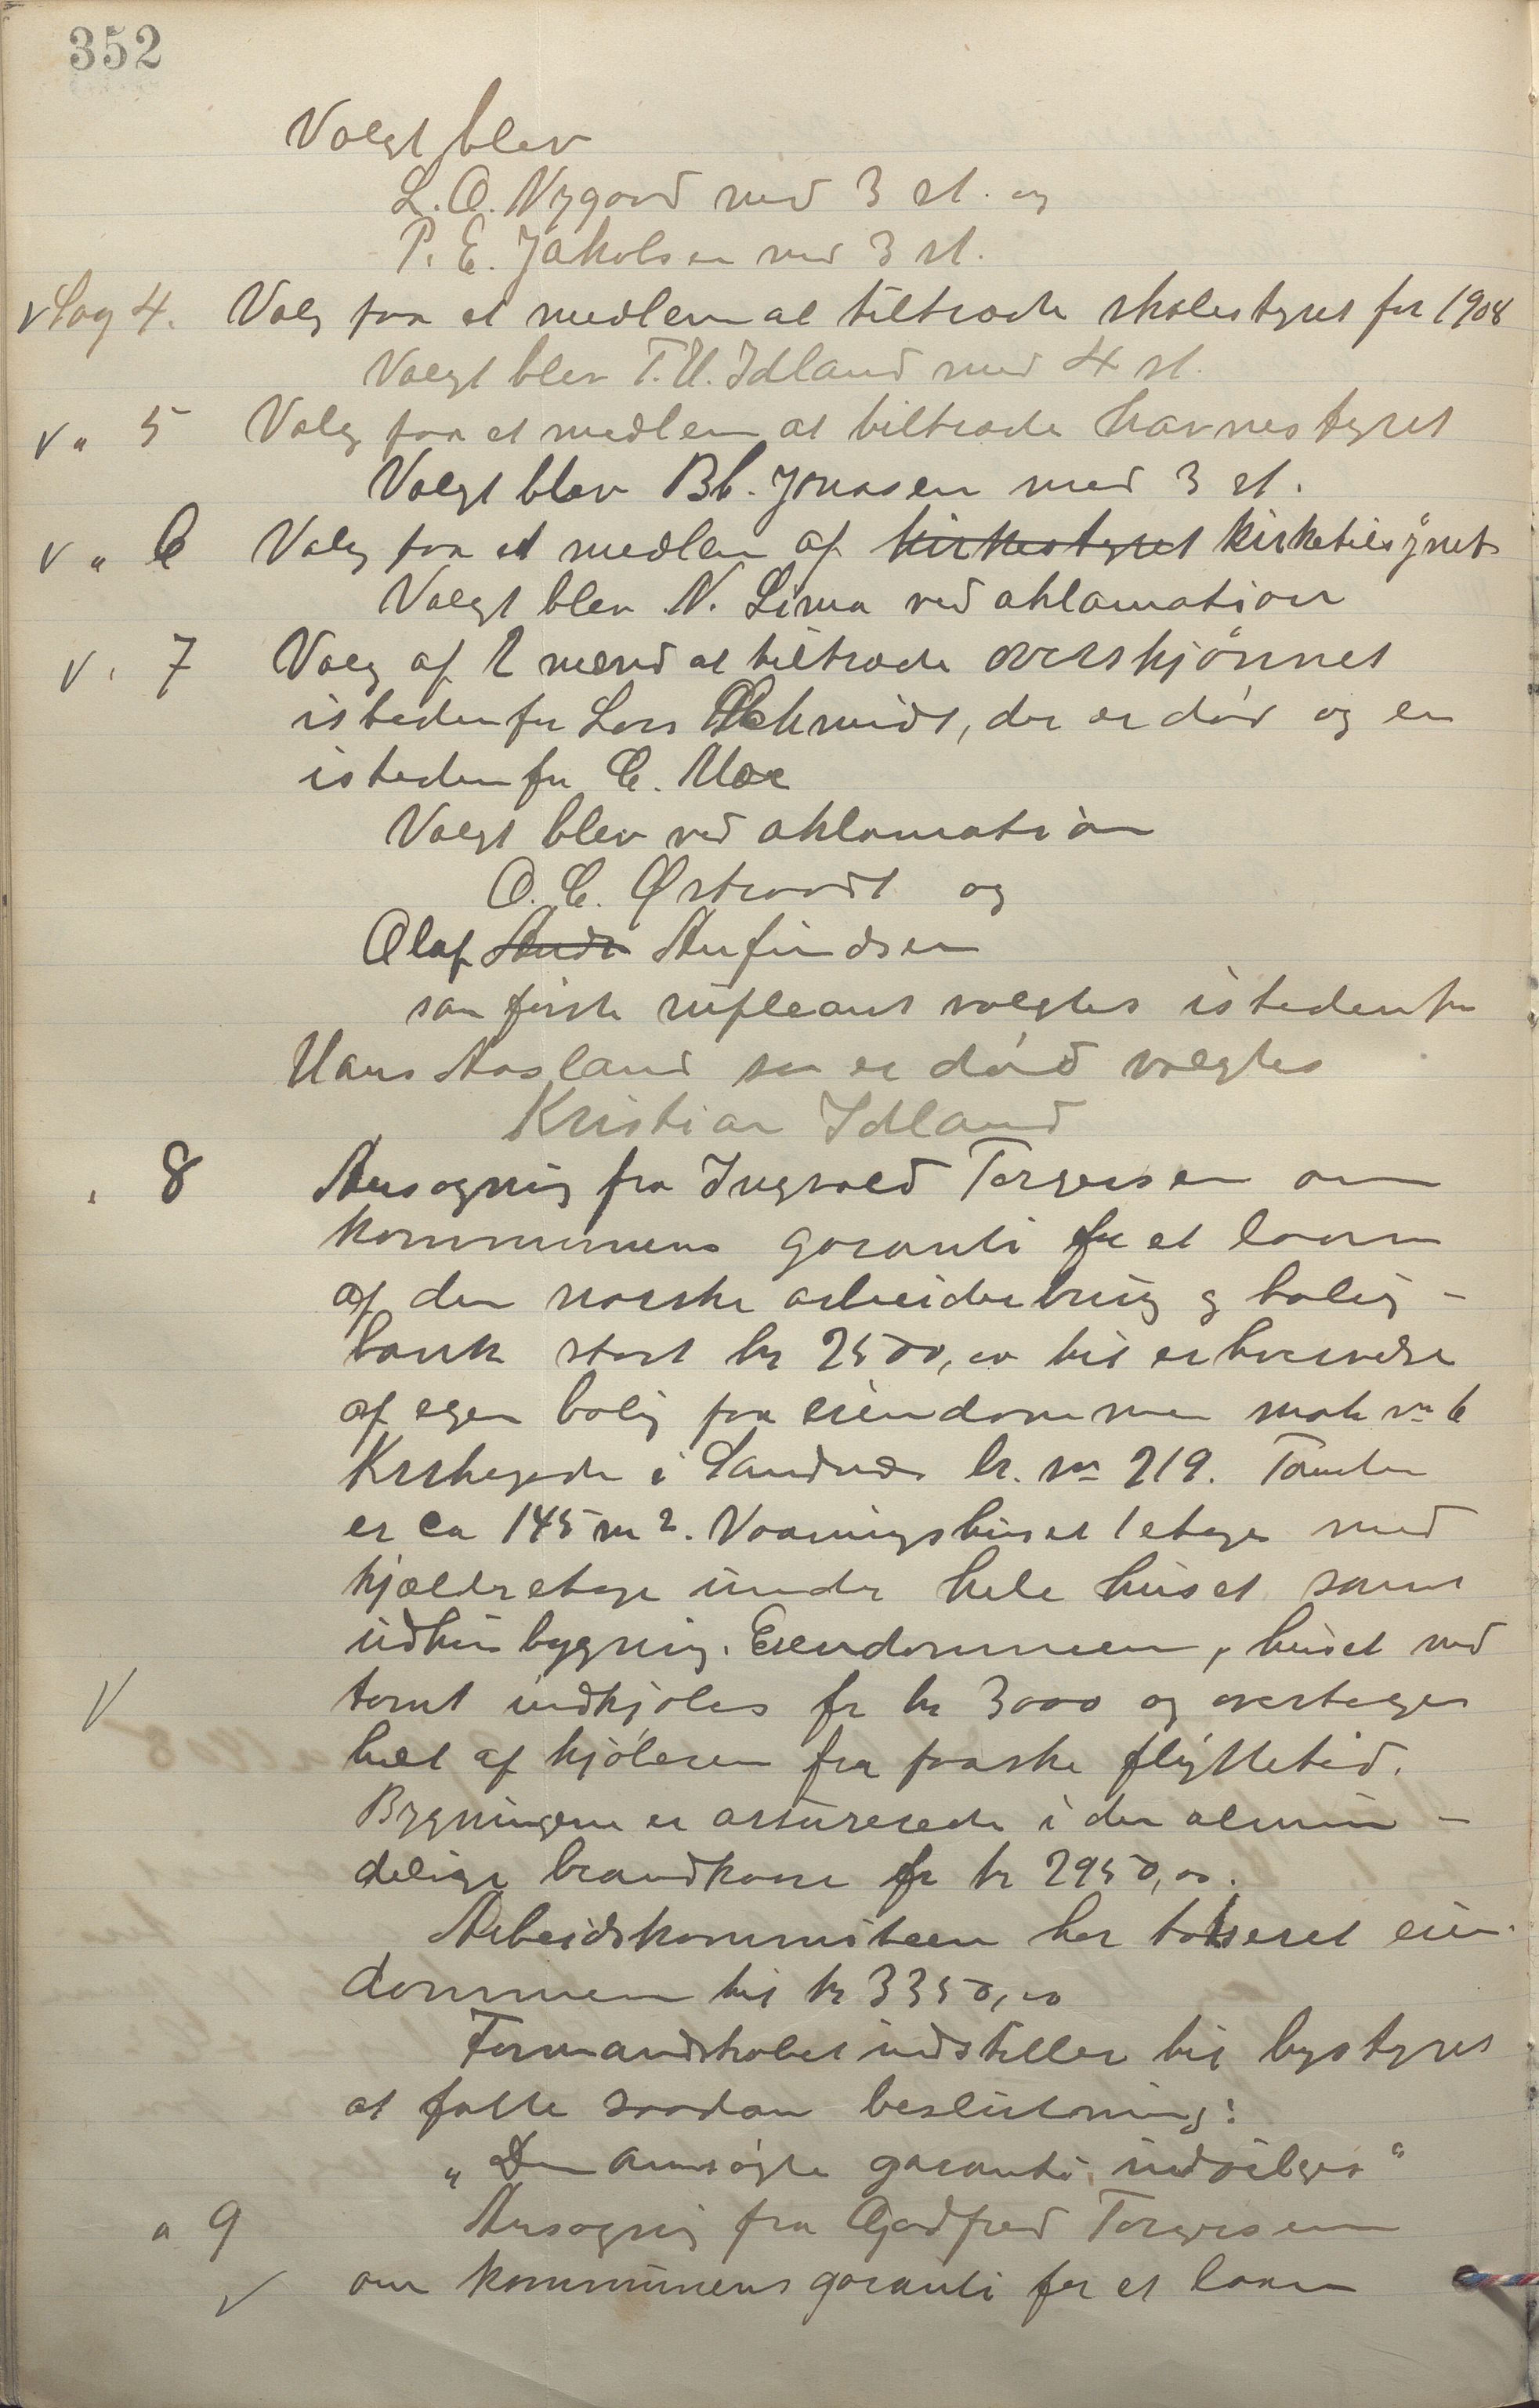 352
Valgt blev
L. O. Nygaard med 3 st. og
P. E. Jakobsen med 3 st.
v Sag 4. Valg paa et medlem at tiltræde skolestyret for 1908
Valgt blev T. U. Idland med 4 st.
v " 5 Valg paa et medlem at tiltræde havnestyret
Valgt blev B b. Jonasen med 3 st.
v " 6 Valg paa et medlem af kirkestyret kirketilsynet
Valgt blev N. Lima ved aklamation
v " 7 Valg af 2 mænd at tiltræde overskjønnet
istedenfor Lars Schmidt, der er død og en
istedenfor C. Moe
Valgt blev ved aklamation
O. C. Østraadt og
Olaf Andr Anfindsen
som første supleant valgtes istedenfor
Hans Aasland som er død valgtes
Kristian Idland
" 8 Ansøgning fra Ingvald Torgersen om
kommunens garanti for et laan
af den norske arbeiderbrug og bolig-
bank stort kr 2500,00 til erhvervelse
af egen bolig paa eiendommen matr nr 6
Kirkegade i Sandnæs br. nr 219. Tomten
er ca 145 m2. Vaaningshuset 1 etage med
kjælderetage under hele huset samt
udhusbygning. Eiendommen, huset med
tomt indkjøbes for kr 3000 og overtages
v helt af kjøberen fra paaske flyttetid.
Bygningerne er assurerede i den almin-
delige brandkasse for kr 2950,00.
Arbeidskommiteen har takseret eien-
dommen til kr 3350,00
Formandskabet indstiller til bystyret
at fatte saadan beslutning:
"Den ansøgte garanti indvilges"
" 9 Ansøgning fra Godfred Torgersen
v om kommunens garanti for et laan